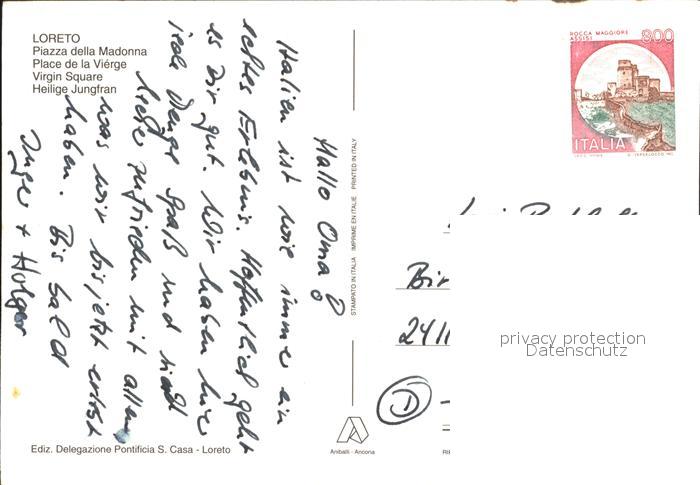 LORETO
Piazza della Madonna
Place de la Viérge
Virgin Square
Heilige Jungfran
Hallo Oma!
Italien ist wie immer ein
echtes Erlebnis. Hoffentlich geht
es Dir gut. Wir haben hier
jede Menge Spaß und sind
sehr zufrieden mit allem
was wir bis jetzt erlebt
haben. Bis bald
Inge + Holger
STAMPATO IN ITALIA IMPRIME EN ITALIE PRINTED IN ITALY
Ediz. Delegazione Pontificia S. Casa - Loreto
Aniballi - Ancona
ROCCA MAGGIORE
ASSISI
800
ITALIA
Bir
2411
D
privacy protection
Datenschutz